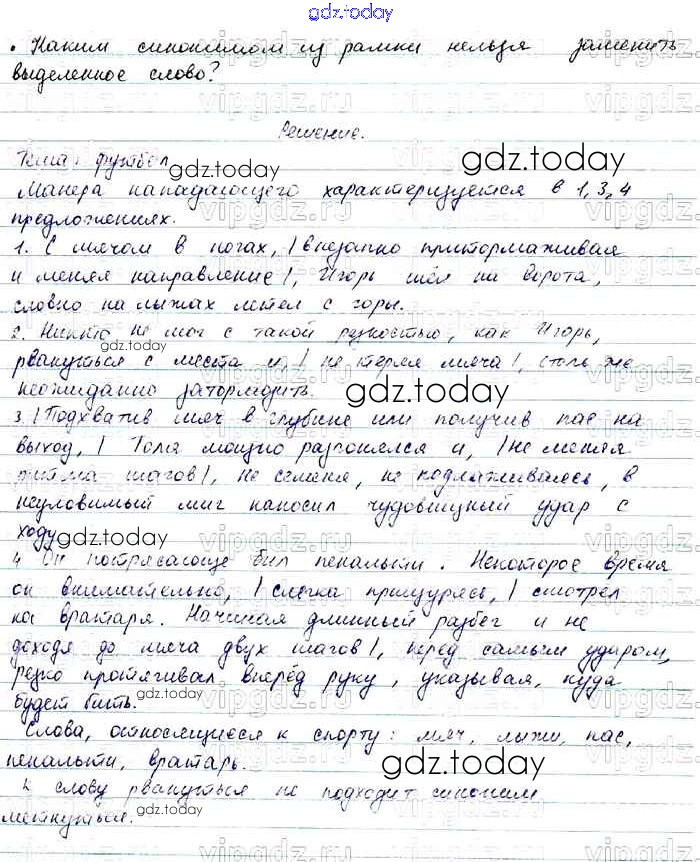 gdz.today
• Каким синонимом из рамки нельзя заменить
выделенное слово?
Решение.
Тема: футбол
gdz.today
gdz.today
Манера нападающего характеризуется в 1, 3, 4
предложениях.
1. С мячом в ногах, | внезапно притормаживая
и меняя направление |, Игорь шёл на ворота,
словно на лыжах летел с горы.
2. Никто не мог с такой резкостью, как Игорь,
gdz.today
рвануться с места и, | не теряя мяча |, столь же
неожиданно затормозить.
gdz.today
3. | Подхватив мяч в глубине или получив пас на
выход, | Толя мощно разгонялся и, | не меняя
ритма шагов |, не семеня, не подлаживаясь, в
неуловимый миг наносил чудовищный удар с
ходу.
gdz.today
4 Он потрясающе бил пенальти. Некоторое время
он внимательно, | слегка прищурясь, | смотрел
на вратаря. Начиная длинный разбег и не
доходя до мяча двух шагов |, перед самым ударом,
резко протягивал вперёд руку, указывая, куда
gdz.today
будет бить.
Слова, относящиеся к спорту: мяч, лыжи, пас,
пенальти, вратарь.
gdz.today
К слову рвануться не подходит синоним
gdz.today
метнуться.
vipgdz.ru